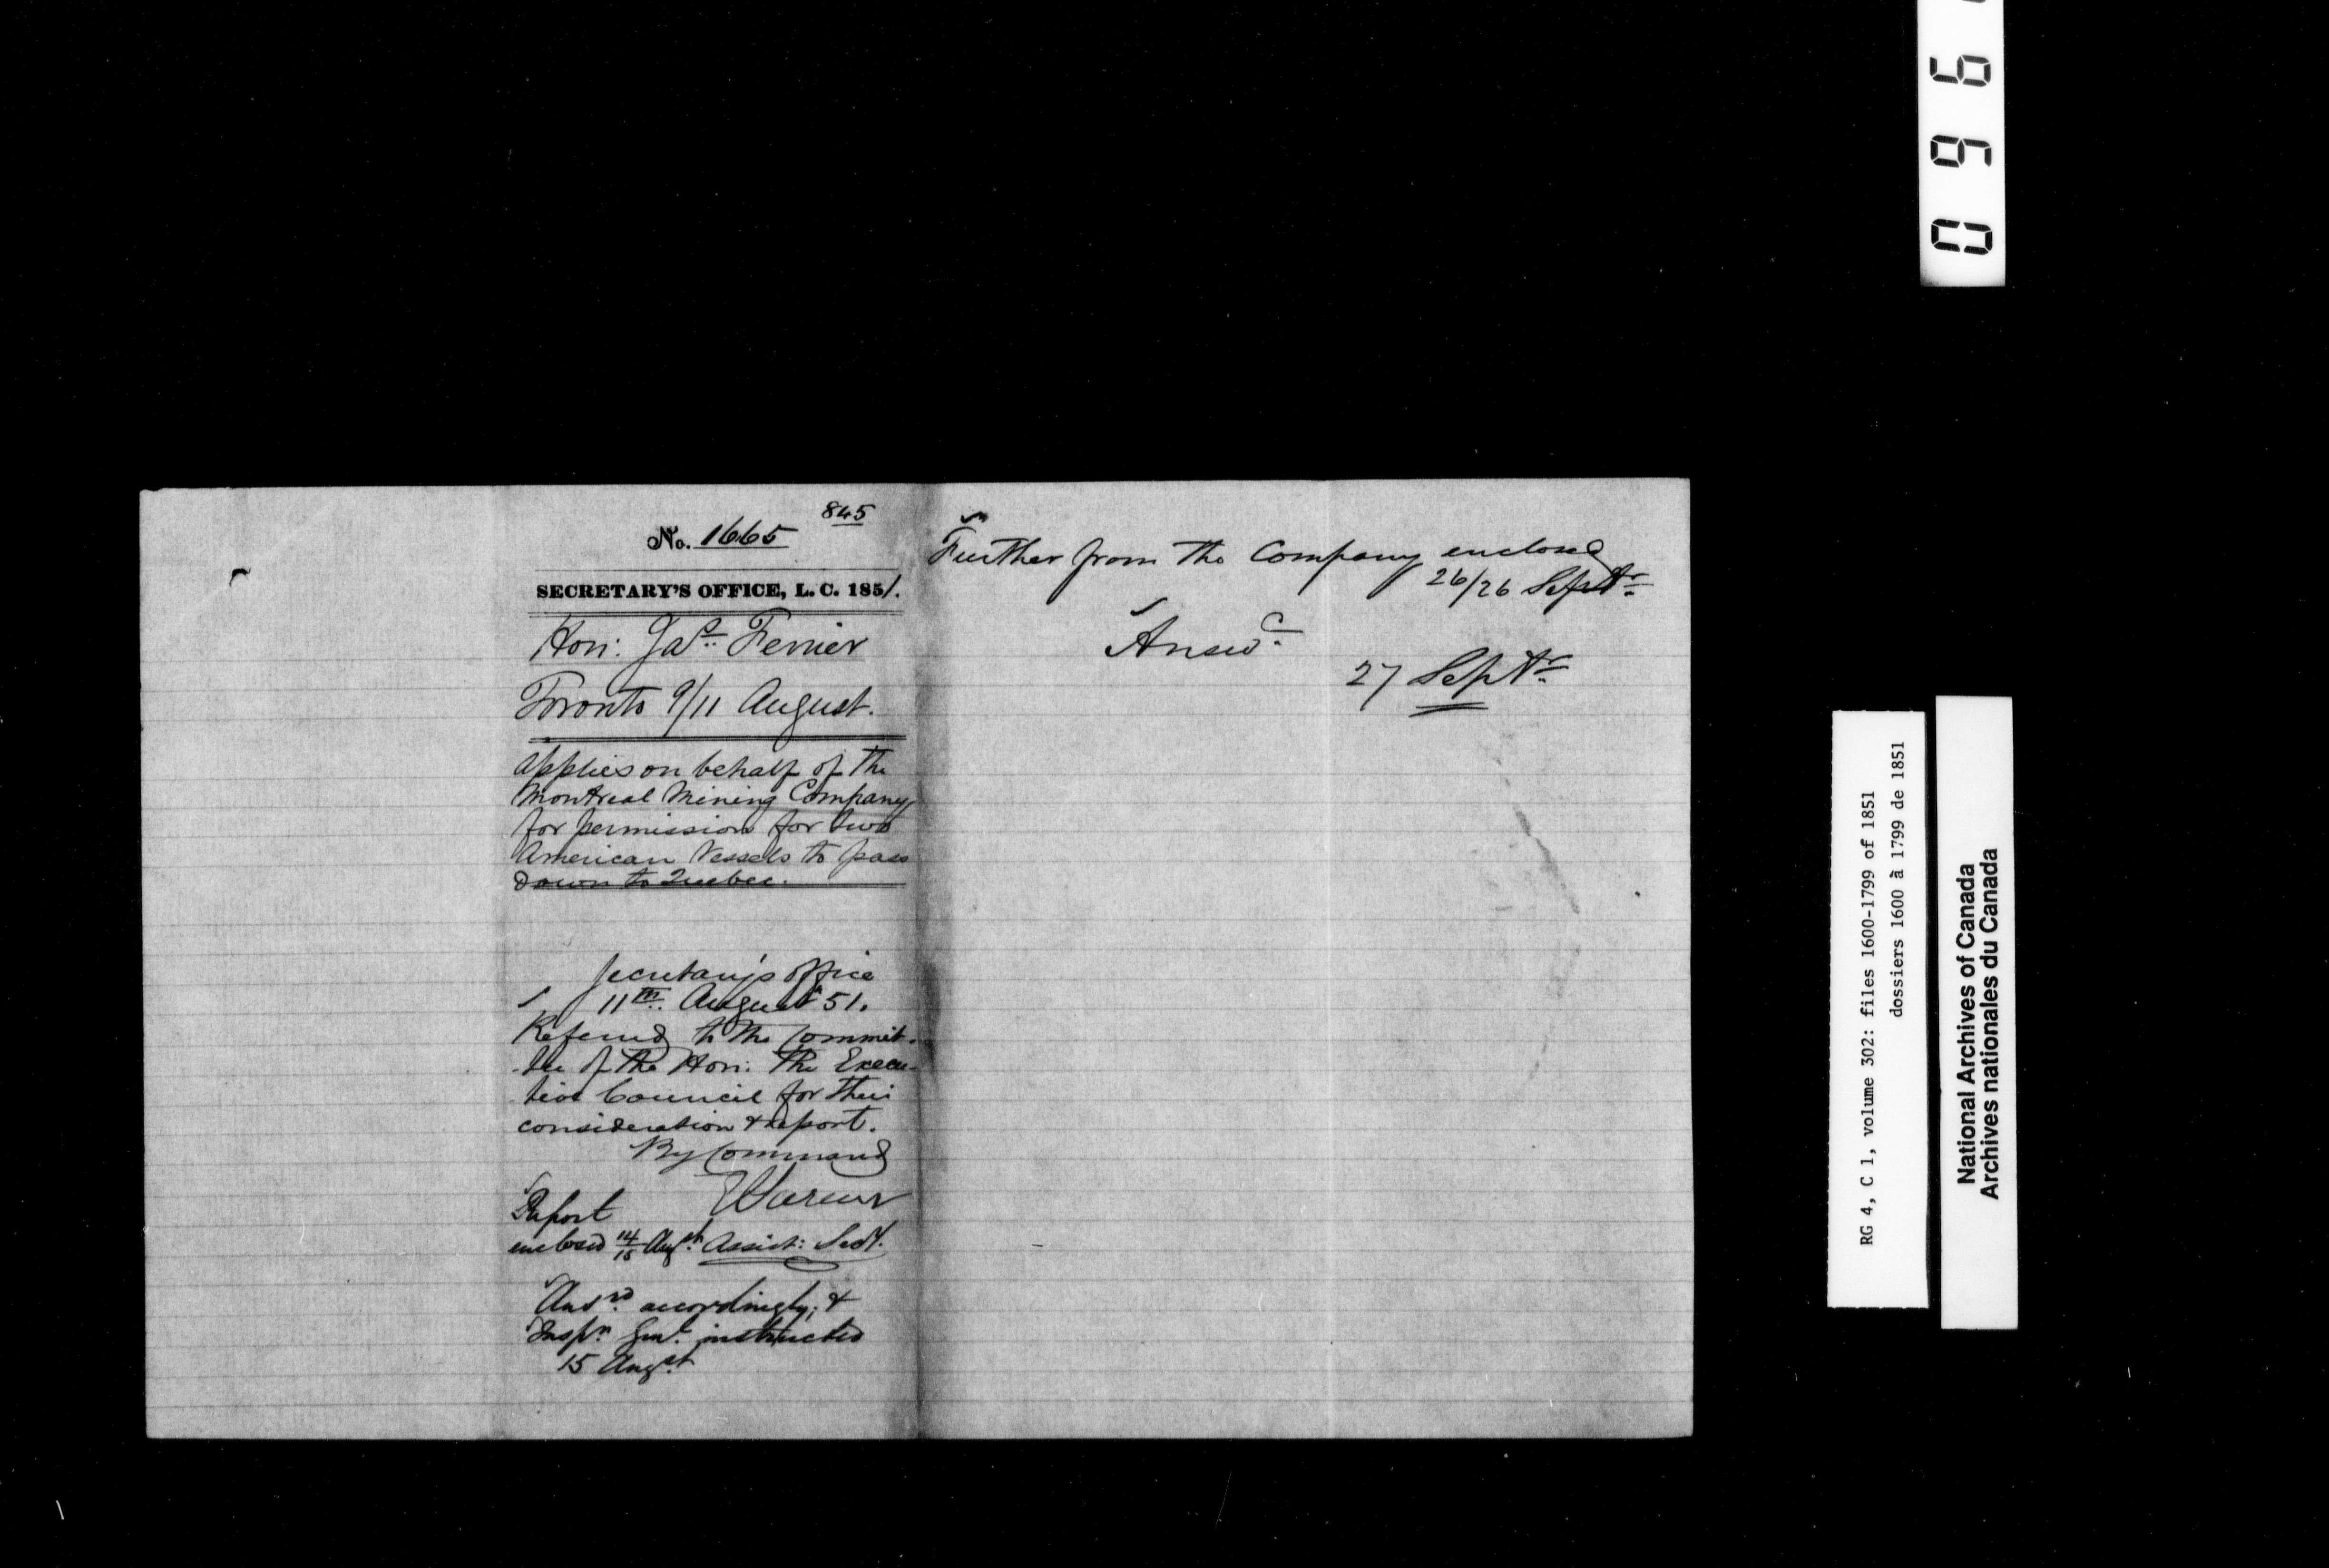 845
No. 1665
SECRETARY'S OFFICE, L. C. 1851.
Hon: Jas. Ferrier
Toronto 9/11 August.
Applies on behalf of the
Montreal Mining Company
for permission for two
American Vessels to pass
down to Quebec.
Secretary's Office
11th. August 51.
Referred to the Commit-
-tee of the Hon: the Execu-
-tive Council for their
consideration & report.
By Command
Assist: Secy.
Report
enclosed 14/15 Augst.
Ansrd. accordingly; &
Inspr. Genl. instructed
15 Augst.
Further from the Company enclosed
26/26 Septr.
Answd.
27 Septr.
0 9 6 6
RG 4, C 1, volume 302: files 1600-1799 of 1851
dossiers 1600 à 1799 de 1851
National Archives of Canada
Archives nationales du Canada